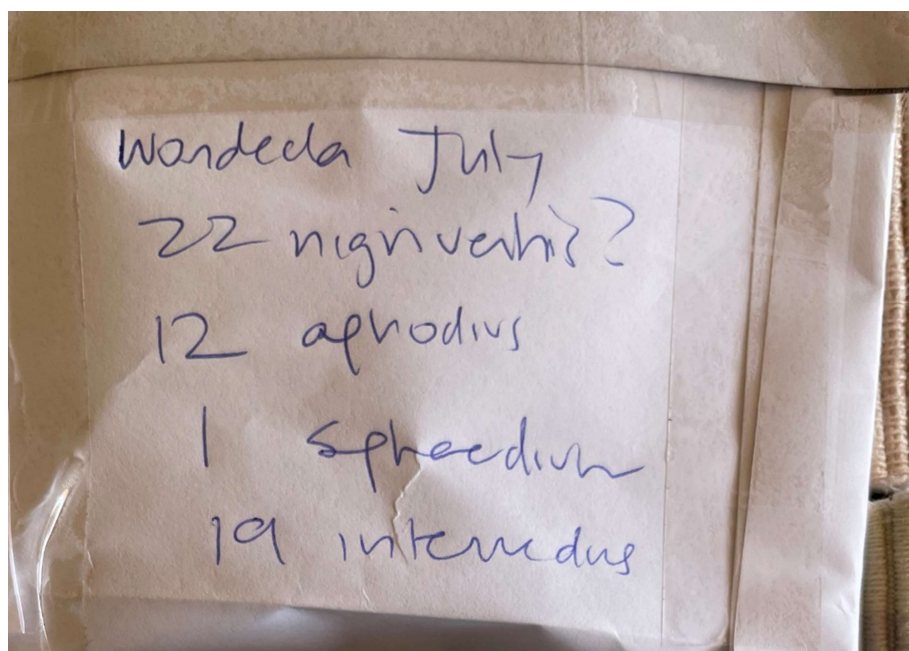 Wondecla July
22 nigriventris?
12 aphodius
1 Sphaedium
19 intermedus